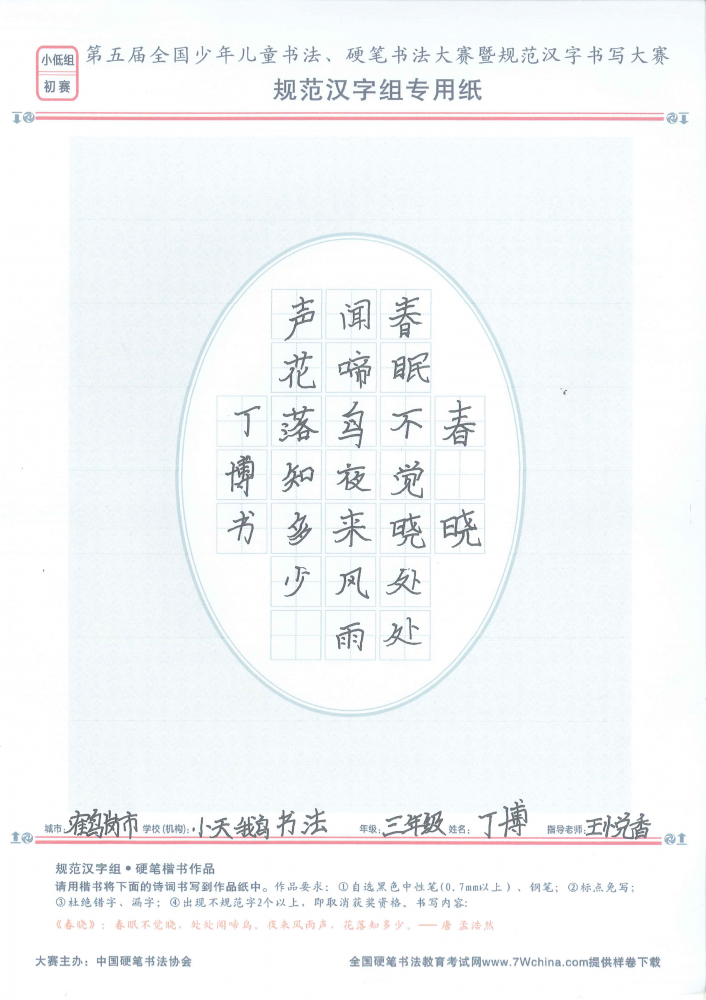 小低组
初赛
第五届全国少年儿童书法、硬笔书法大赛暨规范汉字书写大赛
规范汉字组专用纸
春晓
春眠不觉晓处处
闻啼鸟夜来风雨
声花落知多少
丁博书
城市:鹤岗市 学校(机构):小天鹅书法 年级:三年级 姓名:丁博 指导老师:王悦香
规范汉字组●硬笔楷书作品
请用楷书将下面的诗词书写到作品纸中。作品要求：①自选黑色中性笔(0.7mm以上)、钢笔；②标点免写；
③杜绝错字、漏字；④出现不规范字2个以上，即取消获奖资格。书写内容：
《春晓》：春眠不觉晓，处处闻啼鸟。夜来风雨声，花落知多少。——唐 孟浩然
大赛主办：中国硬笔书法协会
全国硬笔书法教育考试网www.7Wchina.com提供样卷下载